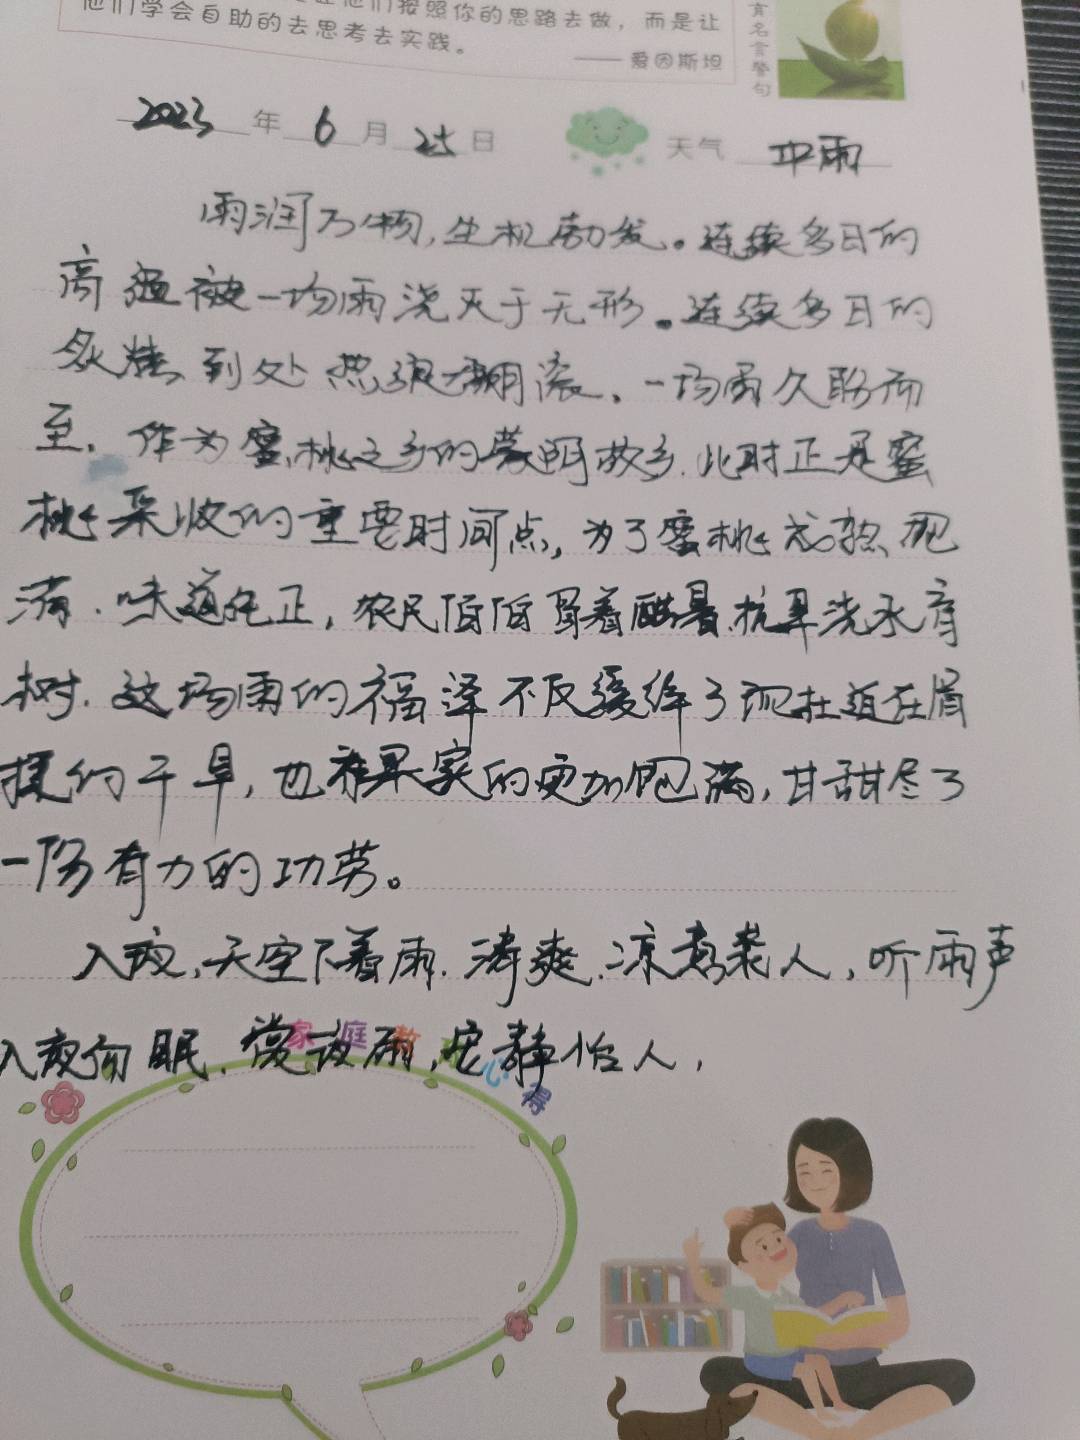 让他们按照你的思路去做，而是让
他们学会自助的去思考去实践。
——爱因斯坦
有名言警句
2023年6月25日 天气 中雨
雨润万物，生机勃发。连续多日的
高温被一场雨浇灭于无形。连续多日的
炙烤，到处热浪翻滚，一场雨久盼而
至，作为蜜桃之乡的蒙阴故乡，此时正是蜜
桃采收的重要时间点，为了蜜桃成熟、肥
满、味道纯正，农民伯伯冒着酷暑，抗旱浇水育
树，这场雨的福泽不仅缓解了现在迫在眉
捷的干旱，也为果实的更加饱满，甘甜尽了
一场有力的功劳。
入夜，天空下着雨，清爽，凉意袭人，听雨声
入夜而眠，赏夜雨，安静怡人，
家庭教 心得